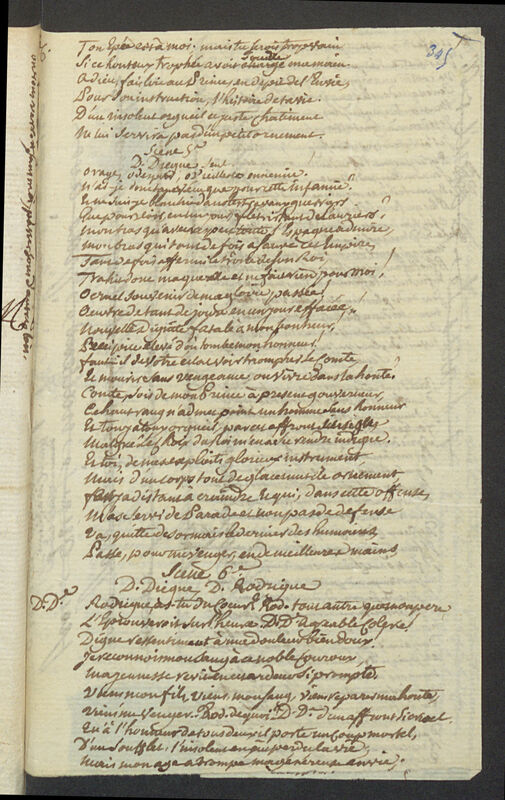 345
Ton Epée est à moi. mais tu serois trop vain
Si ce honteux trophée avoit chargé ma main
souillé
adieu, fais lire au Prince, en depit de l'Envie,
Pour son instruction, l'histoire de ta vie.
D'un insolent orgueil ce juste chatiment
Ne lui servira pas d'un petit ornement.
Scene 5e
D. Diegue seul
o rage, o desespoir, o vieillesse ennemie.
N'ai-je donc tant vécu que pour cette Infamie?
Et ne suis-je blanchi dans les travaux guerriers
Que pour voir en un jour fletrir tant de Lauriers?
mon bras qu'avec respect toute l'Espagne admire,
mon bras qui tant de fois a sauvé cet Empire,
Tant de fois affermi le trône de son Roi,
Trahit donc ma querelle et ne fait rien pour moi!
O cruel souvenir de ma gloire passée!
Oeuvre de tant de jours en un jour effacée!
Nouvelle dignité fatale à mon bonheur,
Precipice élevé d'où tombe mon honneur!
faut-il de votre éclat voir triompher le Comte
Et mourir sans vengeance, ou vivre dans la honte?
Comte, sois de mon Prince à present gouverneur,
Ce haut rang n'admet point un homme sans honneur
Et ton jaloux orgueil par cet affront insigne
Malgré le choix du Roi m'en a sçu rendre indigne.
Et toi, de mes exploits glorieux instrument
Mais d'un corps tout de glace inutile ornement,
fer jadis tant à craindre et qui, dans cette offense,
M'as servi de Parade et non pas de defense
Va, quitte desormais le dernier des humains
Passe, pour me venger, en de meilleures mains.
Scene 6e
D. Diegue D. Rodrigue
D. De
Rodrigue as-tu du Coeur? Rod. tout autre que mon pere
L'Eprouveroit sur l'heure. D. D. agréable Colere!
Digne ressentiment à ma douleur bien doux!
Je reconnois mon sang à ce noble Couroux,
ma jeunesse revit en cette ardeur si prompte.
viens mon fils, viens mon sang, viens reparer ma honte,
viens me venger. Rod. de quoi? D. De. d'un affront si cruel
Qu'à l'honneur de tous deux il porte un coup mortel,
D'un Soufflet. l'insolent en eût perdu la vie,
mais mon age a trompé ma genereuse envie;